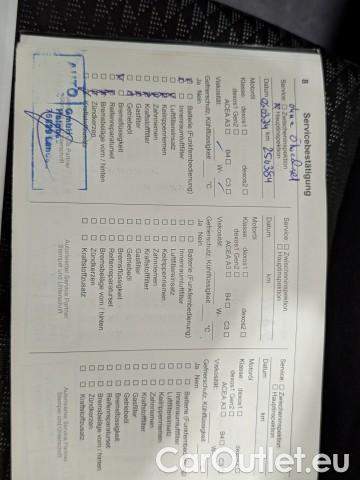 8 Servicebestätigung
ohne Ölwechsel
Service: Zwischeninspektion
Hauptinspektion
Datum km 250384
Motoröl
Klasse: dexos1 dexos2
dexos1 Gen2
ACEA A3 B4 C3
Viskosität: W-
Gefrierschutz, Kühlflüssigkeit: °C
Ja Nein
Batterie (Funkfernbedienung)
Innenraumluftfilter
Luftfiltereinsatz
Keilrippenriemen
Zahnriemen
Kraftstofffilter
Gasfilter
Getriebeöl
Bremsflüssigkeit
Reifenreparaturset
Bremsbeläge vorn / hinten
Zündkerzen
Kraftstoffzusatz
AUTO
Service: Zwischeninspektion
Hauptinspektion
Datum km
Motoröl
Klasse: dexos1 dexos2
dexos1 Gen2
ACEA A3 B4 C3
Viskosität: W-
Gefrierschutz, Kühlflüssigkeit: °C
Ja Nein
Batterie (Funkfernbedienung)
Innenraumluftfilter
Luftfiltereinsatz
Keilrippenriemen
Zahnriemen
Kraftstofffilter
Gasfilter
Getriebeöl
Bremsflüssigkeit
Reifenreparaturset
Bremsbeläge vorn / hinten
Zündkerzen
Kraftstoffzusatz
Autorisierter Service Partner
Stempel und Unterschrift
Service: Zwischeninspektion
Hauptinspektion
Datum km
Motoröl
Klasse: dexos1
dexos1 Gen2
ACEA A3
Viskosität:
Gefrierschutz, Kühlflüssigkeit:
Ja Nein
Batterie (Funkfernbedienung)
Innenraumluftfilter
Luftfiltereinsatz
Keilrippenriemen
Zahnriemen
Kraftstofffilter
Gasfilter
Getriebeöl
Bremsflüssigkeit
Reifenreparaturset
Bremsbeläge vorn / hinten
Zündkerzen
Kraftstoffzusatz
Autorisierter Service Partner
Stempel und Unterschrift
CarOutlet.eu